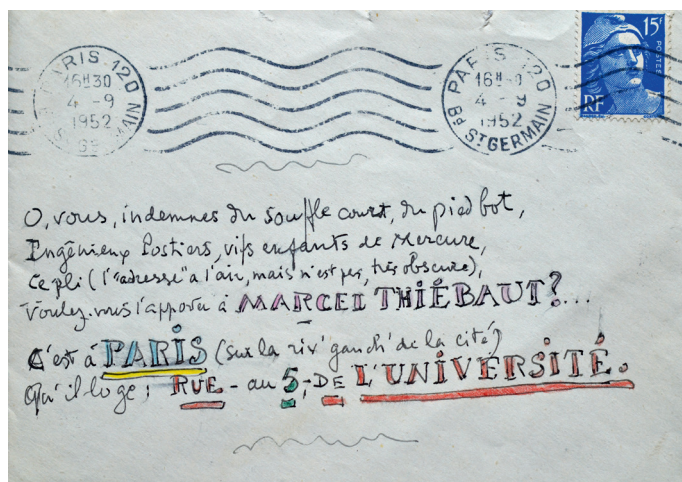 PARIS 120
16H30
4 -9
1952
ST GERMAIN
PARIS 120
16H30
4 - 9
1952
Bd ST GERMAIN
15F
POSTES
RF
O, vous, indemnes du souffle court, du pied bot,
Ingénieux Postiers, vifs enfants de Mercure,
Ce pli (l'"adresse" a l'air, mais n'est pas, très obscure),
Voulez-vous l'apporter à MARCEL THIÉBAUT?...
C'est à PARIS (sur la riv' gauch' de la cité)
Qu'il loge; RUE - au 5, - DE L'UNIVERSITÉ.